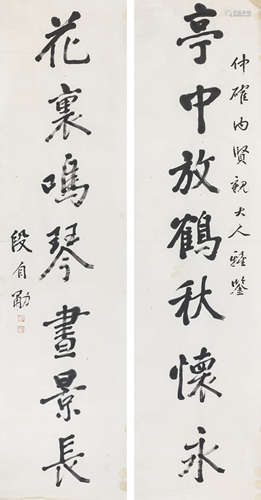 仲確內賢親大人雅鑒
亭中放鶴秋懷永
花裏鳴琴晝景長
段自勛